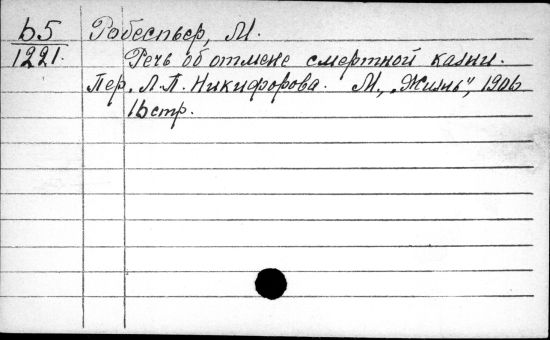 Б5 Робеспьер, М.
1221. Речь об отмене смертной казни.
Пер. Л.П. Никифорова. М., „Жизнь", 1906
16 стр.